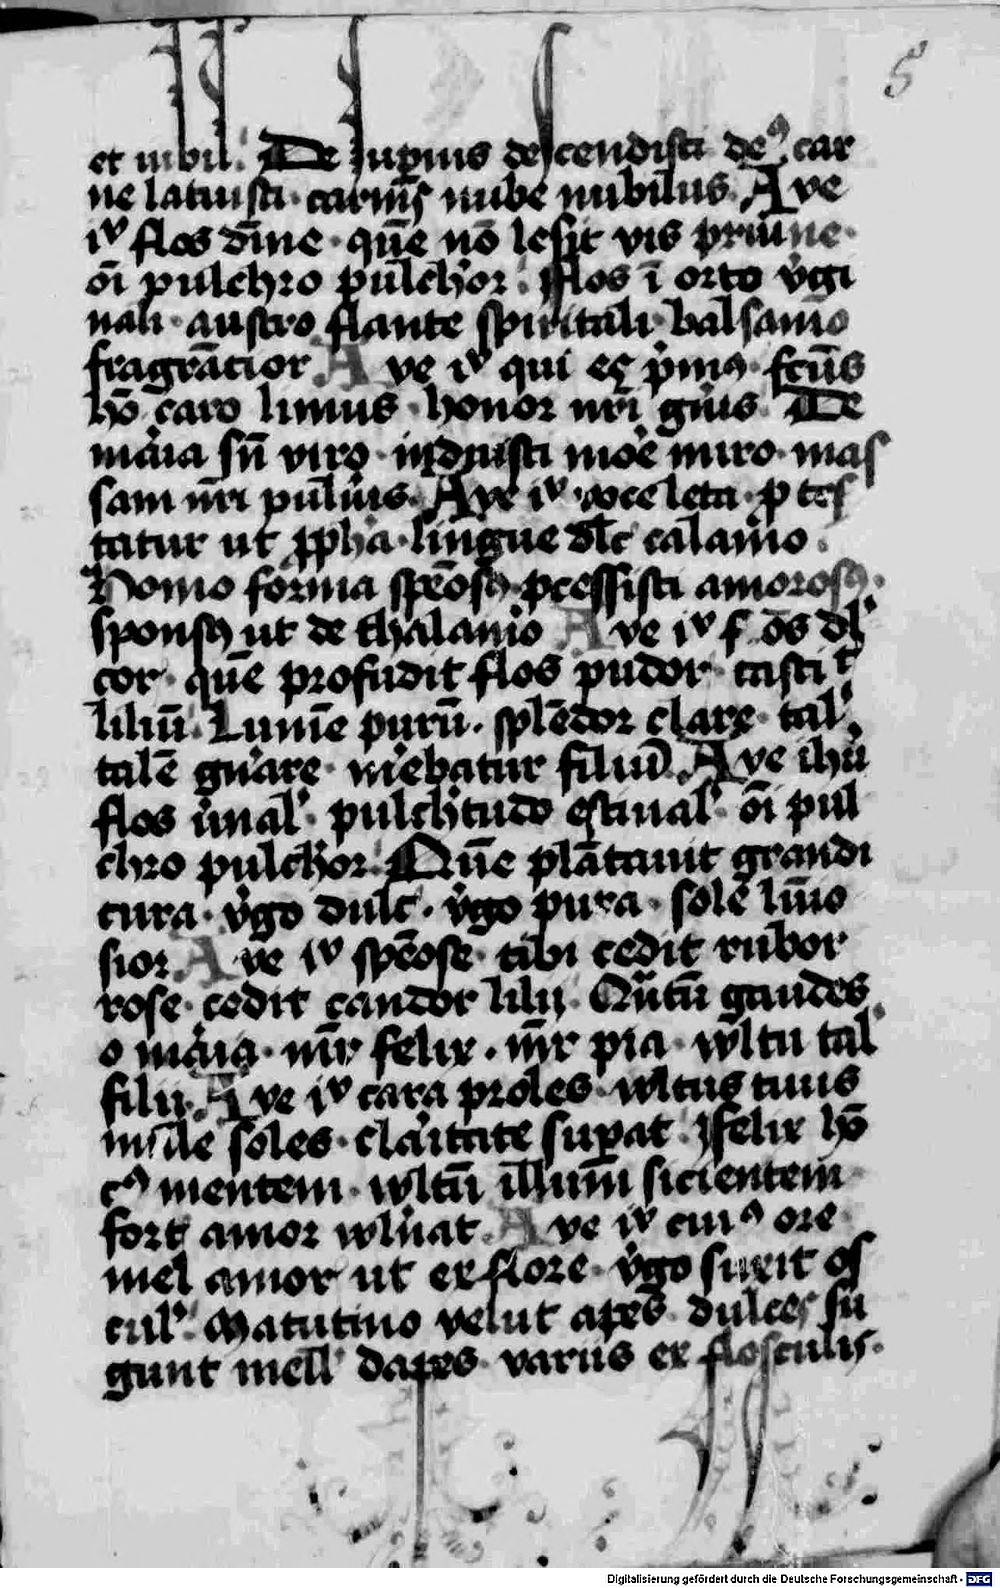 5
et nubil'. De supernis descendisti de9 car
ne latuisti. carnis nube nubilus. Ave
ihu flos dīne. quē nō lesit vis pruine.
oī pulchro pulchior. Flos ī orto vgi
nali. austro flante spiritali. balsamo
fragrācior Ave ihu qui es prim9. fcūs
hō caro limus. honor nri gn̄is. De
maria sn̄ viro. induisti moē miro. mas
sam nri pulūis. Ave ihu. p tes
tatur ut ppha. lingue dlc calamo.
Homo forma spēos9. pcessisti amoros9.
spons9 ut de thalamo Ave ihu f ōs dl'
cor. quē profudit flos pudor. casti t'
liliū. Lumē purū. splēdor clare. tal'
talē gn̄are. merebatur filiū. Ave ihu
flos vernal'. pulchritudo estiual'. oī pul
chro pulchior. Quē plātauit grandi
tura. vgo dulc. vgo pura. sole lūio
sior. Ave ihu spēose. tibi cedit rubor
rose. cedit candor lilij. Quātū gaudes
o maria. mr felix. mr pia. vultu tal'
filii. Ave ihu cara proles. vultus tuus
mille soles. claritate supat. felix hō
c9 mentem. vultū illum sicientem
fort' amor vulnat. Ave ihu cui9 ore
mel amor ut ex flore. vgo suxit os
cul'. Matutino velut apes. dulces su
gunt mell' dapes. variis ex flosculis.
Digitalisierung gefördert durch die Deutsche Forschungsgemeinschaft - DFG